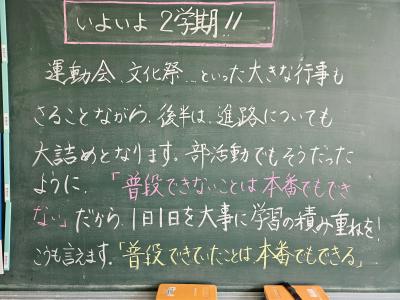 いよいよ2学期!!
運動会、文化祭…といった大きな行事も
さることながら、後半は、進路についても
大詰めとなります。部活動でもそうだった
ように、「普段できないことは本番でもでき
ない」だから、1日1日を大事に学習の積み重ねを!
こうも言えます。「普段できていたことは本番でもできる」